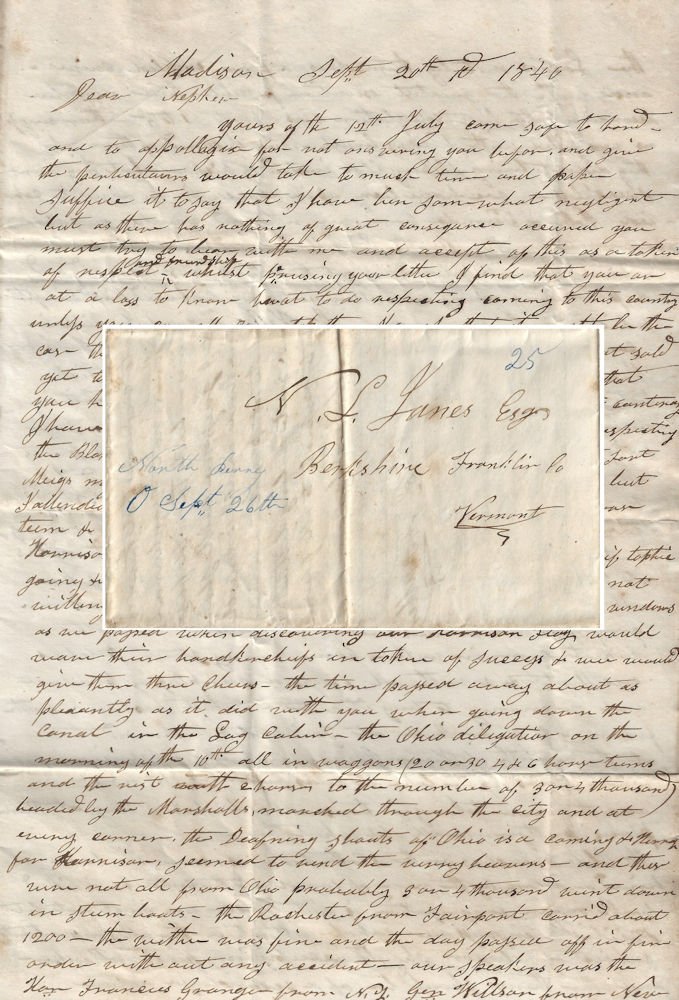 Madison Sept 20th AD 1840
Dear Nephew
yours of the 12th July came safe to hand-
and to appollogix for not answering you befor, and give
the perticulaurs would take to much time and paper
suffice it to say that I have ben somewhat negligent
but as there has nothing of great consequence accured you
must try to bear with me and accept of this as a token
of respect and friendship - whilst perusing your letter I find that you are
at a loss to know what to do respecting coming to this country
unless you
be the
cas
sold
yet
that
you
I have
respecting
the
Fort
Meigs
but
I attended
our
team &
Harrison
going &
not
willing
windows
as we passed when discovering our Harrison Flag, would
wave their handkercheifs in token of success & we would
give them three cheers - the time passed away about as
pleasantly as it did with you when going down the
Canal in the Log Cabin - the Ohio diligation on the
morning of the 10th all in waggons (20 or 30 4 & 6 horse teams
and the rest with 2 horses to the number of 3 or 4 thousand)
headed by the Marshalls, marched through the city and at
every corner, the Deafning shouts of Ohio is a coming & Hurra
for Harrison, seemed to rend the verry heavens - and these
were not all from Ohio probably 3 or 4 thousand went down
in steam boats - the Rochester from Fairport carrid about
1200 - the wether was fine and the day passed off in fine
order with out any accident - our speakers was the
Hon Francies Granger from N.Y. Gen Willson from New
25
N. L. Janes Esqr
North Perry
Berkshire Franklin Co
O Sept 26th
Vermont